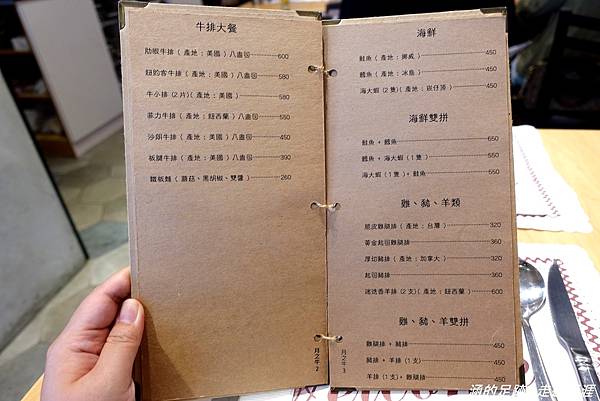 牛排大餐
肋眼牛排 ( 產地 : 美國 ) 八盎司 600
紐約客牛排 ( 產地 : 美國 ) 八盎司 580
牛小排 (2 片)( 產地 : 美國 ) 580
菲力牛排 ( 產地 : 紐西蘭 ) 八盎司 550
沙朗牛排 ( 產地 : 美國 ) 八盎司 450
板腱牛排 ( 產地 : 美國 ) 八盎司 390
鐵板麵 ( 蘑菇、黑胡椒、雙醬 ) 260
月之牛 2
海鮮
鮭魚 ( 產地 : 挪威 ) 450
鱈魚 ( 產地 : 冰島 ) 450
海大蝦 (2 隻)( 產地 : 崁仔頂 ) 450
海鮮雙拼
鮭魚 + 鱈魚 550
鱈魚 + 海大蝦 (1 隻) 550
海大蝦 (1 隻)+ 鮭魚 550
雞、豬、羊類
脆皮雞腿排 ( 產地 : 台灣 ) 320
黃金起司雞腿排 360
厚切豬排 ( 產地 : 加拿大 ) 320
起司豬排 360
迷迭香羊排 (2 支)( 產地 : 紐西蘭 ) 600
雞、豬、羊雙拼
雞腿排 + 豬排 450
豬排 + 羊排 (1 支) 450
羊排 (1 支)+ 雞腿排 450
月之牛 3